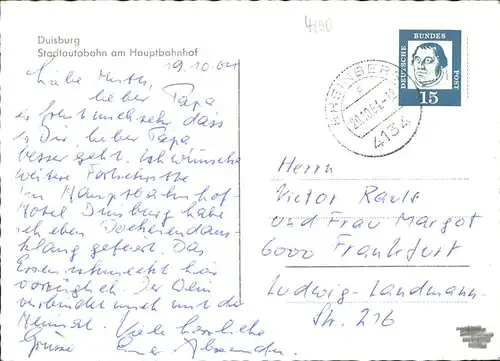 4100
Duisburg
Stadtautobahn am Hauptbahnhof
19.10.64
Liebe Mutti,
lieber Papa
es freut mich sehr, dass
es Dir, lieber Papa
besser geht. Ich wünsche
weitere Fortschritte
Im Hauptbahnhof-
Hotel Duisburg habe
ich eben Wochenendaus-
klang gefeiert. Das
Essen schmeckt hier
vorzüglich. Der Wein
verbindet mich mit der
Heimat. Viele herzliche
Grüsse Euer Alexander
DEUTSCHE BUNDES POST
15
RHEINBERG
20.10.64
4134
Herrn
Victor Rauls
und Frau Margot
6000 Frankfurt
Ludwig-Landmann-
Str. 216